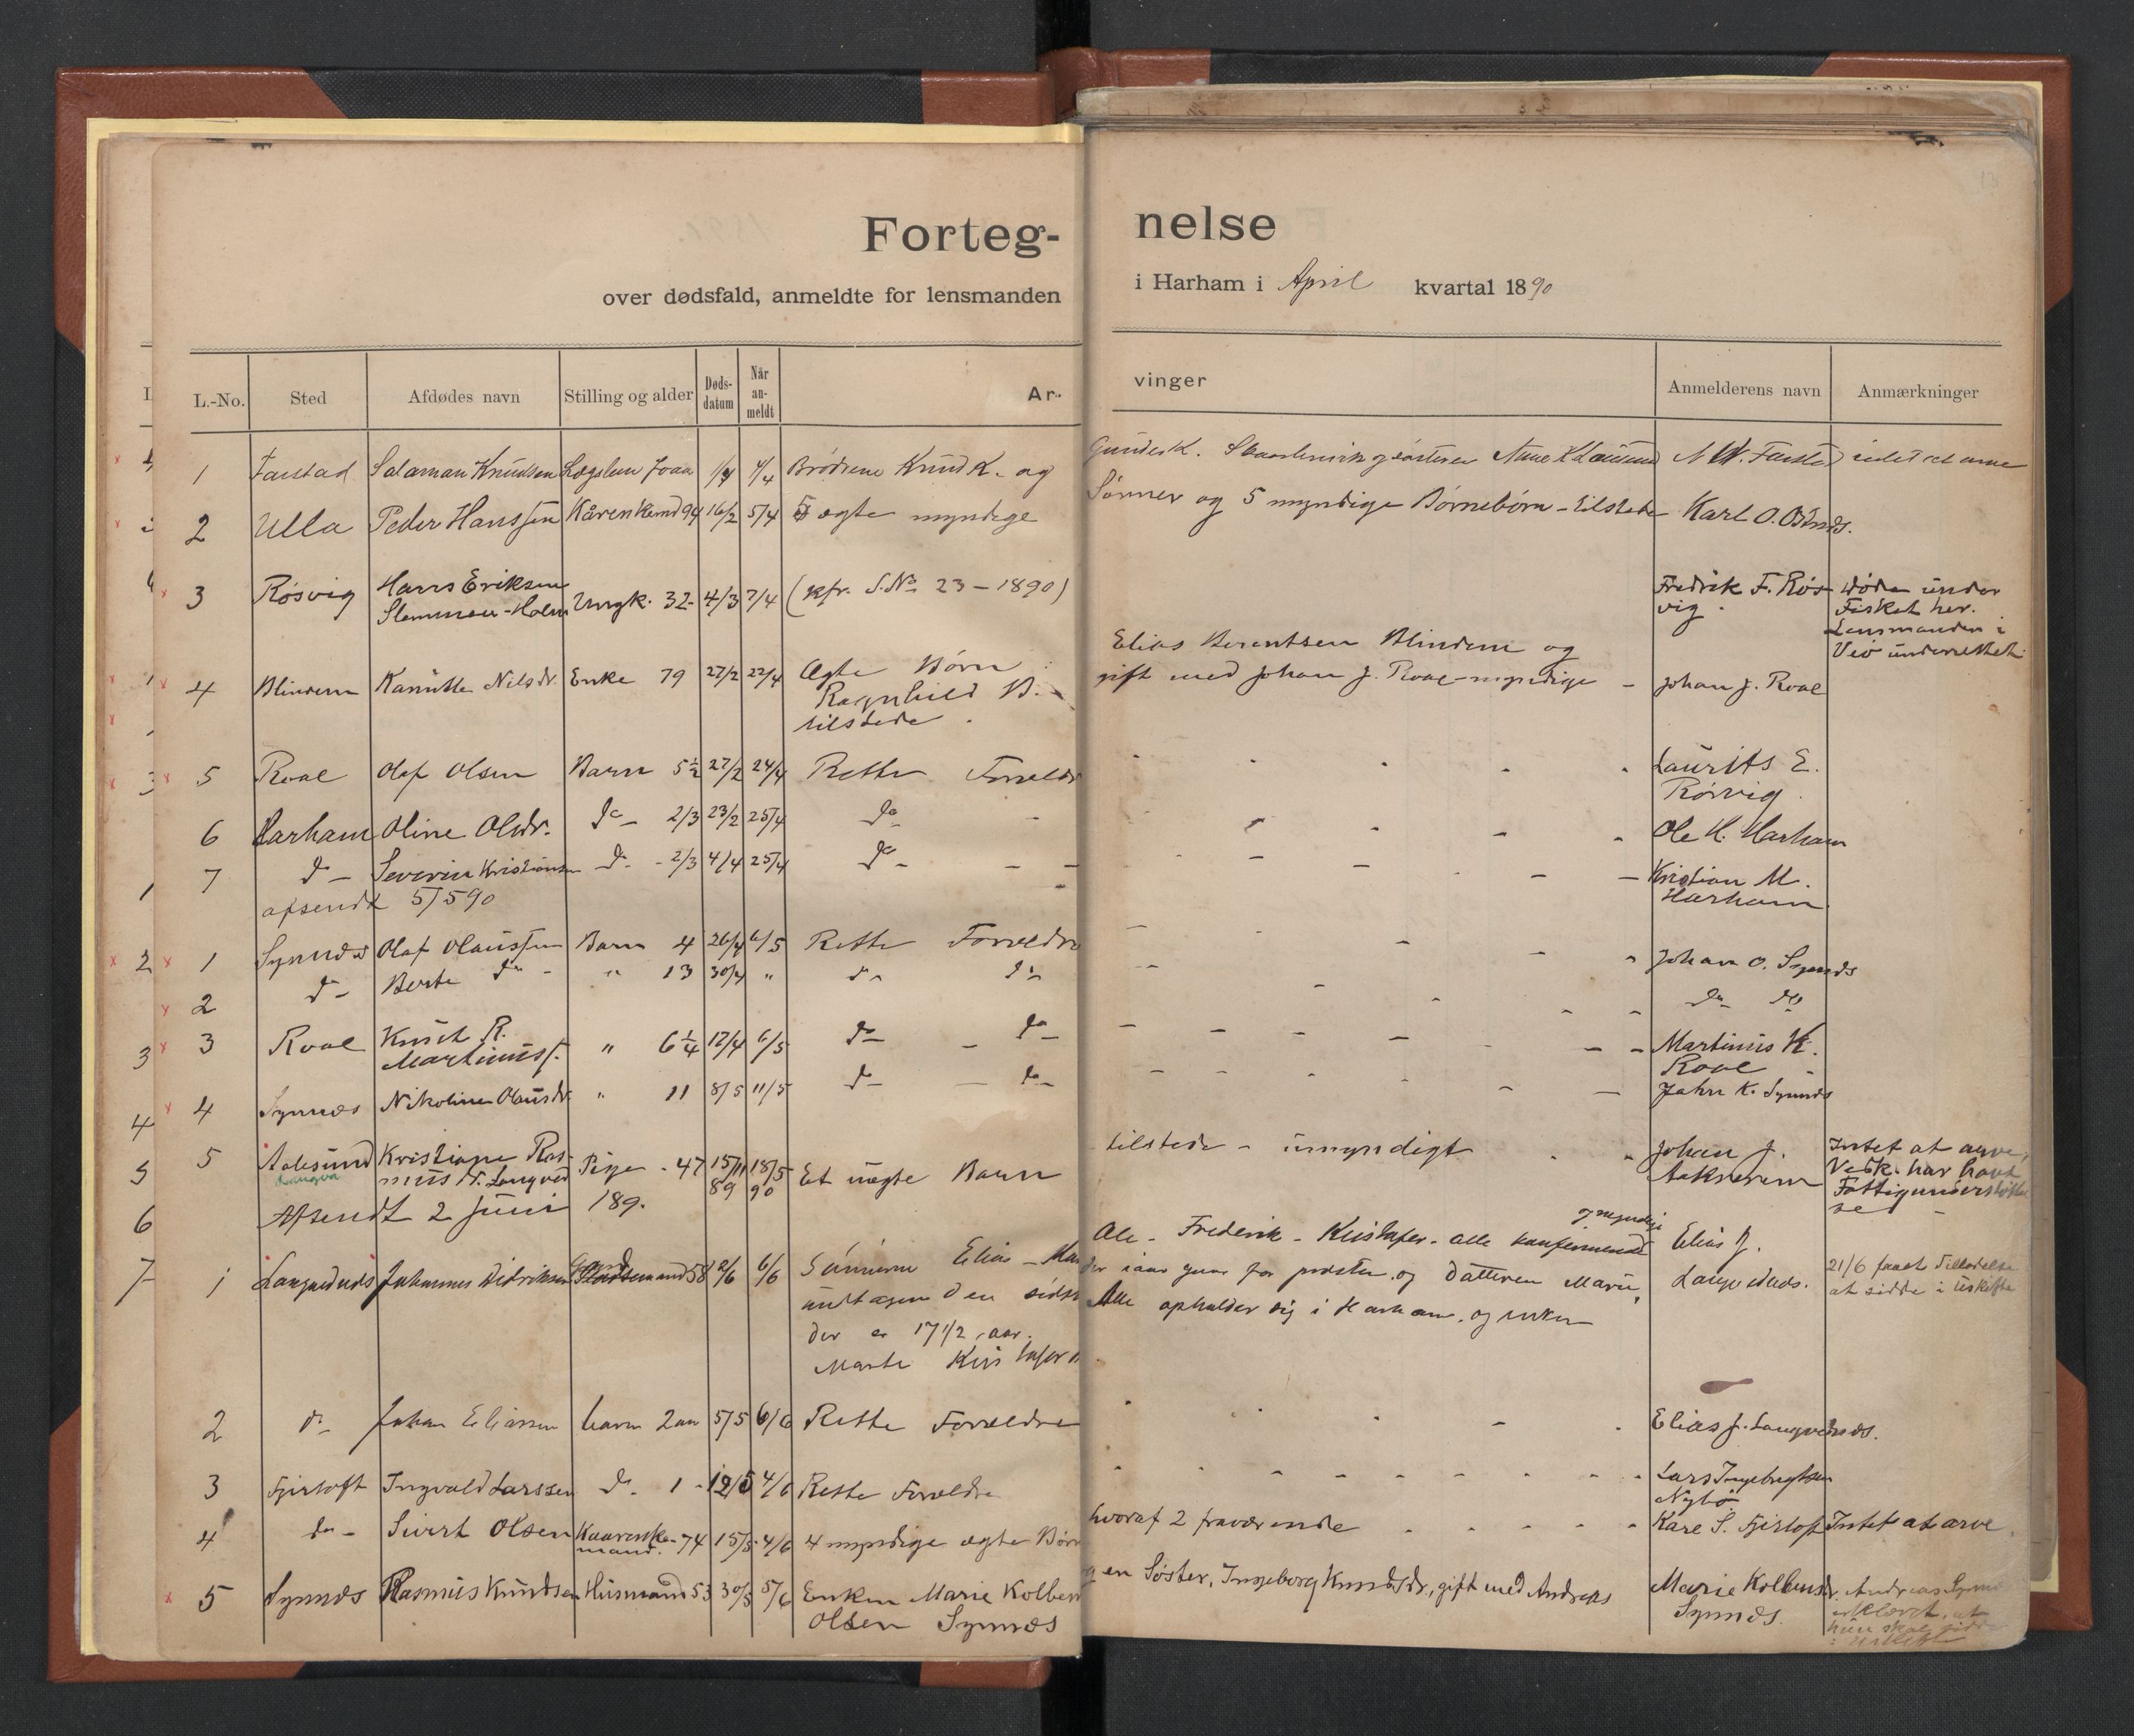 Forteg- nelse
over dødsfald, anmeldte for lensmanden i Harham i April kvartal 1890
L.-No. Sted Afdødes navn Stilling og alder Døds-datum Når an-meldt Ar- vinger Anmelderens navn Anmærkninger
1 Farstad Salaman Knudsen Lægslem 1/4 4/4 Brødrene Knud K. og
2 Ulla Peder Hanssen Kårenkemd 94 16/2 5/4 5 ægte myndige Sønner og 5 myndige Børnebørn - tilstede Karl O. Østnæs.
3 Røsvig Hans Eriksen Ungk. 32 4/3 7/4 (kfr. S. No 23 - 1890) Fredrik F. Røs- Døde under
vig. Fisket her.
Lensmanden i
Veø underrettet
4 Blindem Kanutte Nilsdr. Enke 79 27/2 22/4 Ægte Børn Elias Berentsen Blindem og
Ragnhild B. gift med Johan J. Roal - myndige - Johan J. Roal
tilstede.
5 Roal Olaf Olsen Barn 5½ 27/2 24/4 Rette Forældre Laurits E.
Rørvig.
6 Harham Oline Olsdr. do 2/3 23/2 25/4 do Ole H. Harham
7 do Severin Kristiansen do 2/3 4/4 25/4 do Kristian M.
Harham
afsendt 5/5 90
1 Synnæs Olaf Olaussen Barn 4 26/4 6/5 Rette Forældre Johan O. Synnæs
2 do Berte do " 13 30/4 " do do do do
3 Roal Knut R. " 6¼ 12/4 6/5 do do Martinus K.
Martinuss. Roal
4 Synnæs Nikoline Olausdr. " 11 8/5 11/5 do do John K. Synnæs
5 Aalesund Kristiane Ras- Pige - 47 15/11 89 18/5 90 Et uægte Barn tilstede - umyndigt Johan J. Intet at arve,
Langva mus N. Longved Aakserem Vedk. har havt
Fattigunderstøttel
se
Afsendt 2 Juni 189.
1 Langvednæs Johannes Didriksen 58 2/6 6/6 Sønnerne Elias - Ole - Frederik - Kristofer - alle konfirmerede Elias J. 21/6 faaet Tilladelse
myndige
undtagen den sidste der iaar gaar for presten, og Datteren Marie, Langvednæs. at sidde i uskifte
der er 17 1/2 aar. Alle opholder sig i Harham, og enken
Marte Kristofers
2 do Johan Eliassen barn 2 aar 5/5 6/6 Rette Forældre Elias J. Langvednæs.
3 Fjærtoft Ingvald Larssen do 1 12/5 4/6 Rette Forældre Lars Ingebrigtsen
Nybø
4 do Sivert Olsen Kaarenke- 74 15/5 4/6 4 myndige ægte Børn hvoraf 2 fraværende Kare S. Fjærtoft Intet at arve.
mand.
5 Synnæs Rasmus Knudsen Husmand 53 30/5 5/6 Enken Marie Kolbens og en Søster, Ingeborg Knudsdr., gift med Andreas Marie Kolbensdr. Andreas Synnæs
Olsen Synnæs Synnæs. erklæret, at
hun skal sidde
i uskifte